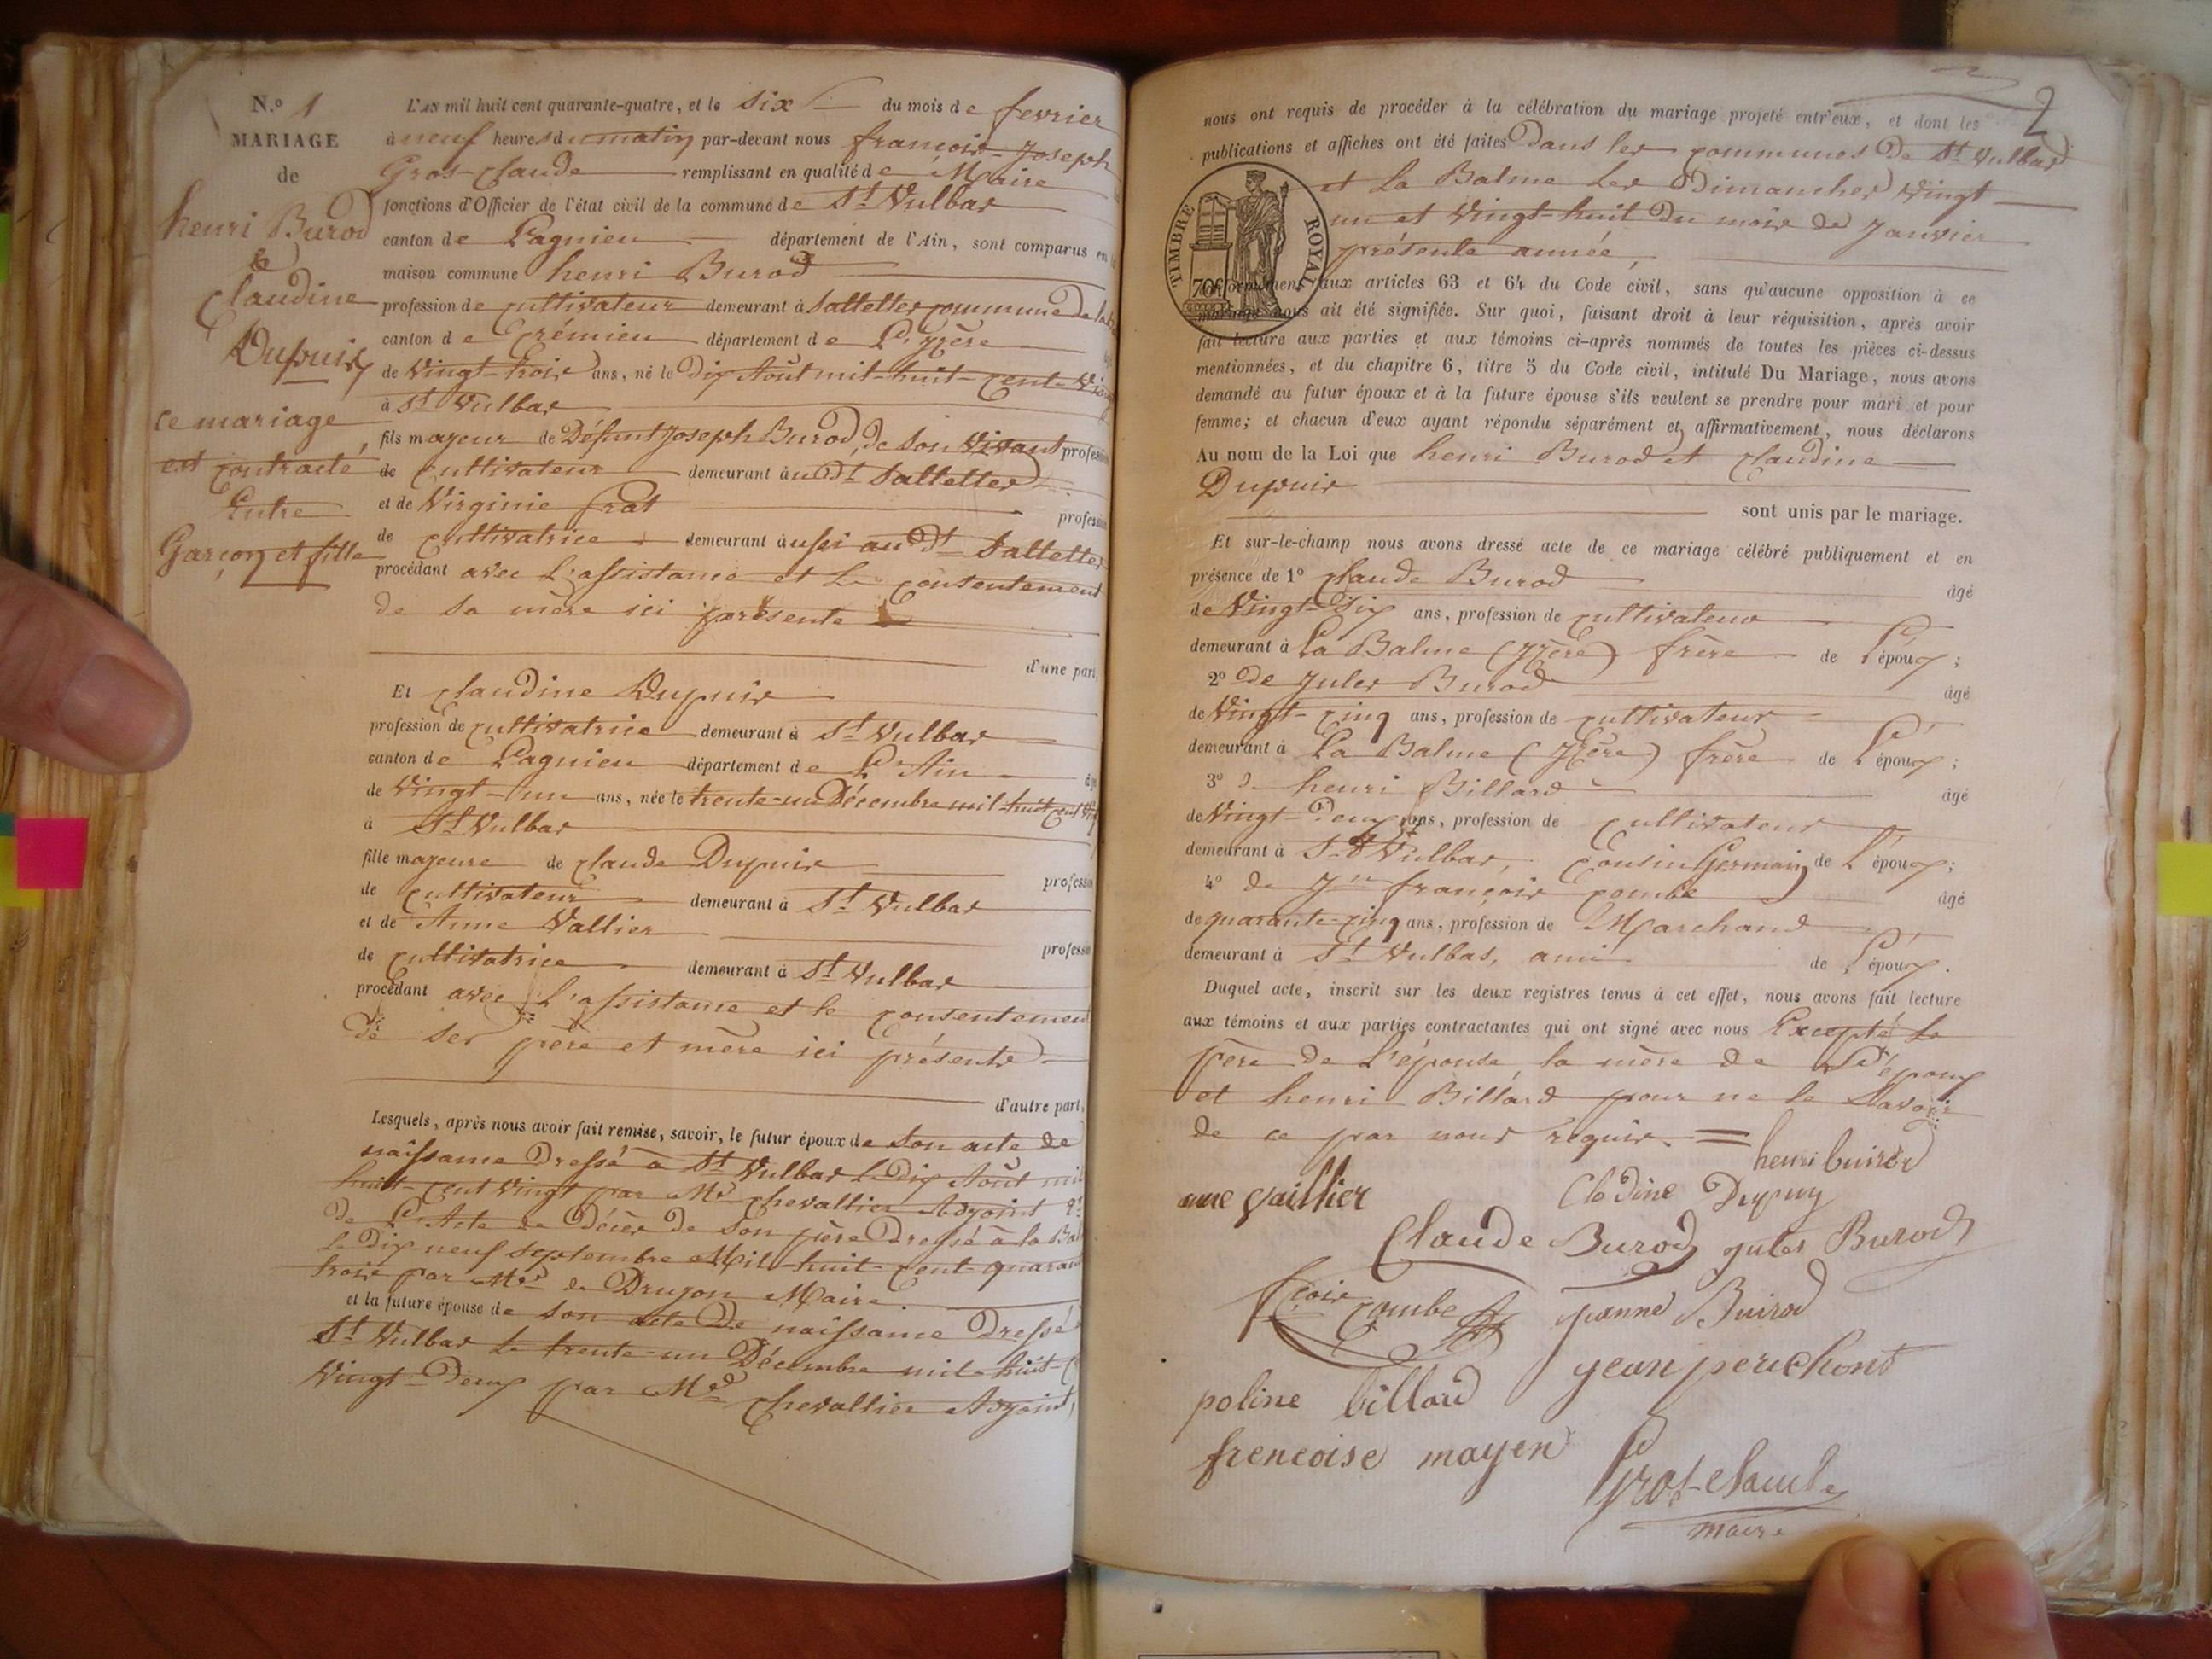 N.o 1
MARIAGE
de
henri Burod
&
Claudine
Dupuis
ce mariage
est contracté
Entre
Garçon et fille
L'AN mil huit cent quarante-quatre, et le Six du mois de fevrier
à neuf heures du matin par-devant nous françois-Joseph
Gros-Claude remplissant en qualité de Maire
fonctions d'Officier de l'état civil de la commune de St Vulbas
canton de Lagnieu département de l'Ain, sont comparus en
maison commune henri Burod
profession de cultivateur demeurant à Sallettes commune de
canton de Crémieu département de L'Izère
de Vingt-trois ans, né le Dix Août mil-huit-cent-
à St Vulbas
fils majeur de Défunt Joseph Burod, de son vivant
de cultivateur demeurant au dt Sallettes
et de Virginie frat
de cultivatrice demeurant aussi au dt Sallettes
procédant avec L'assistance et le consentement
de sa mère ici présente
d'une part,
Et Claudine Dupuis
profession de cultivatrice demeurant à St Vulbas
canton de Lagnieu département de L'Ain
de Vingt-un ans, née le trente-un Décembre mil-huit cent
à St Vulbas
fille majeure de Claude Dupuis
de cultivateur demeurant à St Vulbas
et de Anne Vallier
de cultivatrice demeurant à St Vulbas
procédant avec L'assistance et le consentement
de ses père et mère ici présents
d'autre part,
Lesquels, après nous avoir fait remise, savoir, le futur époux de son acte de
naissance Dressé à St Vulbas le Dix Août mil
huit-cent vingt par Mr Chevallier Adjoint
De L'Acte de Décès de son père Dressé à la
le Dix neuf Septembre Mil-huit-cent-
trois par Mr de Drujon Maire
et la future épouse de son acte de naissance Dressé
St Vulbas le trente-un Décembre mil-huit-
Vingt-Deux par Mr Chevallier Adjoint,
2
nous ont requis de procéder à la célébration du mariage projeté entr'eux, et dont les
publications et affiches ont été faites Dans les communes de St Vulbas
et La Balme les Dimanches vingt
un et Vingt-huit du mois de Janvier
présente année,
TIMBRE ROYAL
70
aux articles 63 et 64 du Code civil, sans qu'aucune opposition à ce
mariage nous ait été signifiée. Sur quoi, faisant droit à leur réquisition, après avoir
fait lecture aux parties et aux témoins ci-après nommés de toutes les pièces ci-dessus
mentionnées, et du chapitre 6, titre 5 du Code civil, intitulé Du Mariage, nous avons
demandé au futur époux et à la future épouse s'ils veulent se prendre pour mari et pour
femme; et chacun d'eux ayant répondu séparément et affirmativement, nous déclarons
Au nom de la Loi que henri Burod et Claudine
Dupuis
sont unis par le mariage.
Et sur-le-champ nous avons dressé acte de ce mariage célébré publiquement et en
présence de 1o Claude Burod âgé
de Vingt-Six ans, profession de cultivateur
demeurant à La Balme (Izère) frère de L'époux;
2o de Jules Burod âgé
de Vingt-cinq ans, profession de cultivateur
demeurant à La Balme (Izère) frère de L'époux;
3o de henri Billard âgé
de Vingt-Deux ans, profession de cultivateur
demeurant à St Vulbas, Cousin Germain de L'époux;
4o de Jn françois combe âgé
de quarante-cinq ans, profession de Marchand
demeurant à St Vulbas, ami de L'époux.
Duquel acte, inscrit sur les deux registres tenus à cet effet, nous avons fait lecture
aux témoins et aux parties contractantes qui ont signé avec nous Excepté le
père de L'épouse, la mère de L'époux
et henri Billard pour ne le Savoir
de ce par nous requis.
henri buirod
ane vaillier
Clodine Dupuy
Claude Burod Jules Burod
fçois combe Janne Buirod
poline billard
jean perichont
frencoise moyen
Gros-Claude
maire